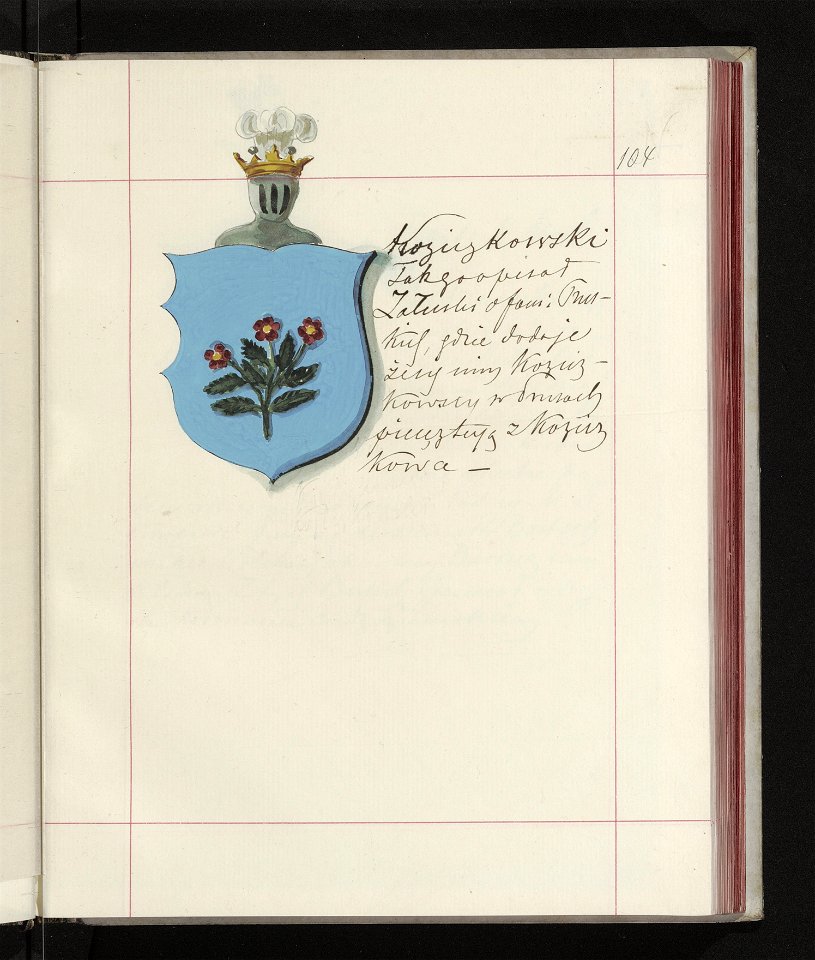 104
Koziczkowski
Tak go opisał
Załuski o fami: Prus-
kich, gdzie dodaje
że się inny Kozicz-
kowscy w Prusach
pieczętują z Kozicz
kowa —